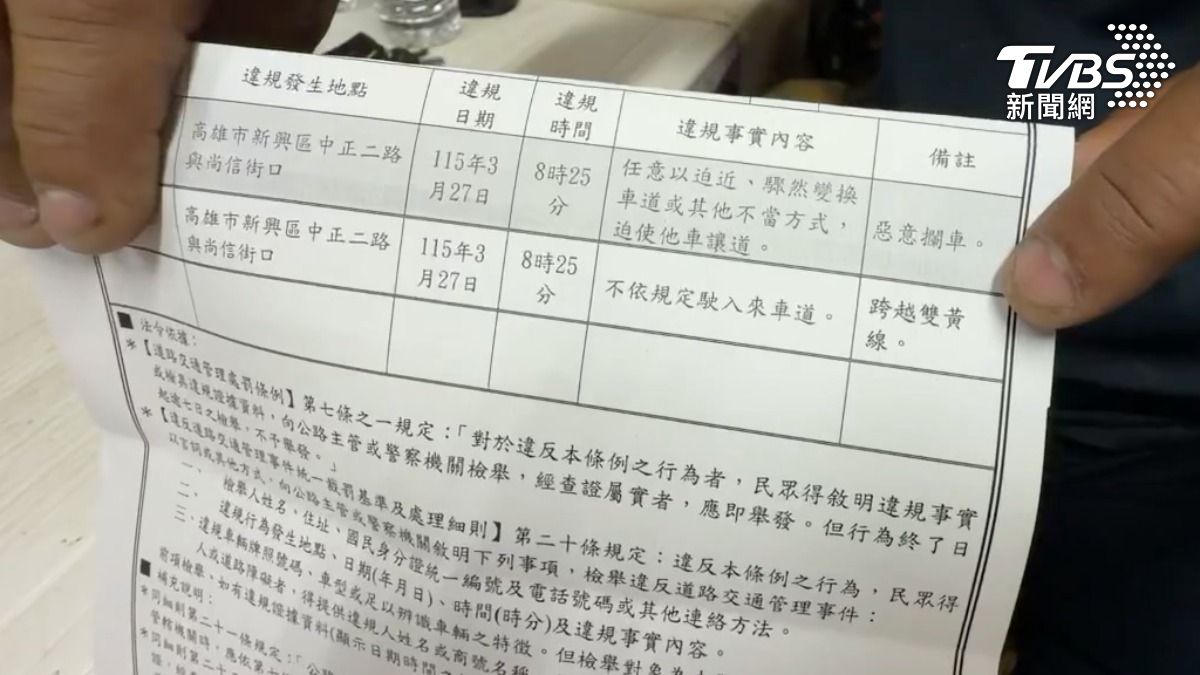 TVBS
新聞網
違規發生地點
違規
日期
違規
時間
違規事實內容
備註
高雄市新興區中正二路
與尚信街口
115年3
月27日
8時25
分
任意以迫近、驟然變換
車道或其他不當方式，
迫使他車讓道。
惡意攔車。
高雄市新興區中正二路
與尚信街口
115年3
月27日
8時25
分
不依規定駛入來車道。
跨越雙黃
線。
■ 法令依據：
*【道路交通管理處罰條例】第七條之一規定：「對於違反本條例之行為者，民眾得敘明違規事實
或檢具違規證據資料，向公路主管或警察機關檢舉，經查證屬實者，應即舉發。但行為終了日
起逾七日之檢舉，不予舉發。」
*【違反道路交通管理事件統一裁罰基準及處理細則】第二十條規定：違反本條例之行為，民眾得
以言詞或其他方式，向公路主管或警察機關敘明下列事項，檢舉違反道路交通管理事件：
一、檢舉人姓名、住址、國民身分證統一編號及電話號碼或其他連絡方法。
二、違規行為發生地點、日期(年月日)、時間(時分)及違規事實內容。
三、違規車輛牌照號碼、車型或足以辨識車輛之特徵。但檢舉對象為
人或道路障礙者，得提供違規人姓名或商號名稱
前項檢舉，如有違規證據資料(顯示日期時間
■ 補充說明：
*同細則第二十一條規定：「公
管轄機關時，應依第
*同細則第二十